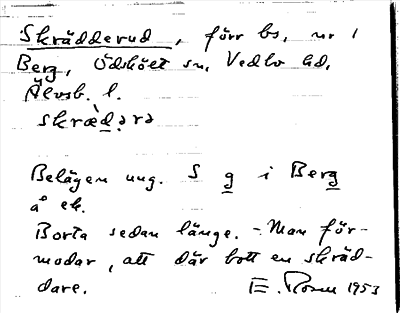 Skrädderud, förr bs, nr 1
Berg, Ödskölt sn, Vedbo hd,
Älvsb. l.
skræ̀d.ərə
Belägen ung. S g i Berg
å ek.
Borta sedan länge. - Man för-
modar, att där bott en skräd-
dare. E. Rosen 1953